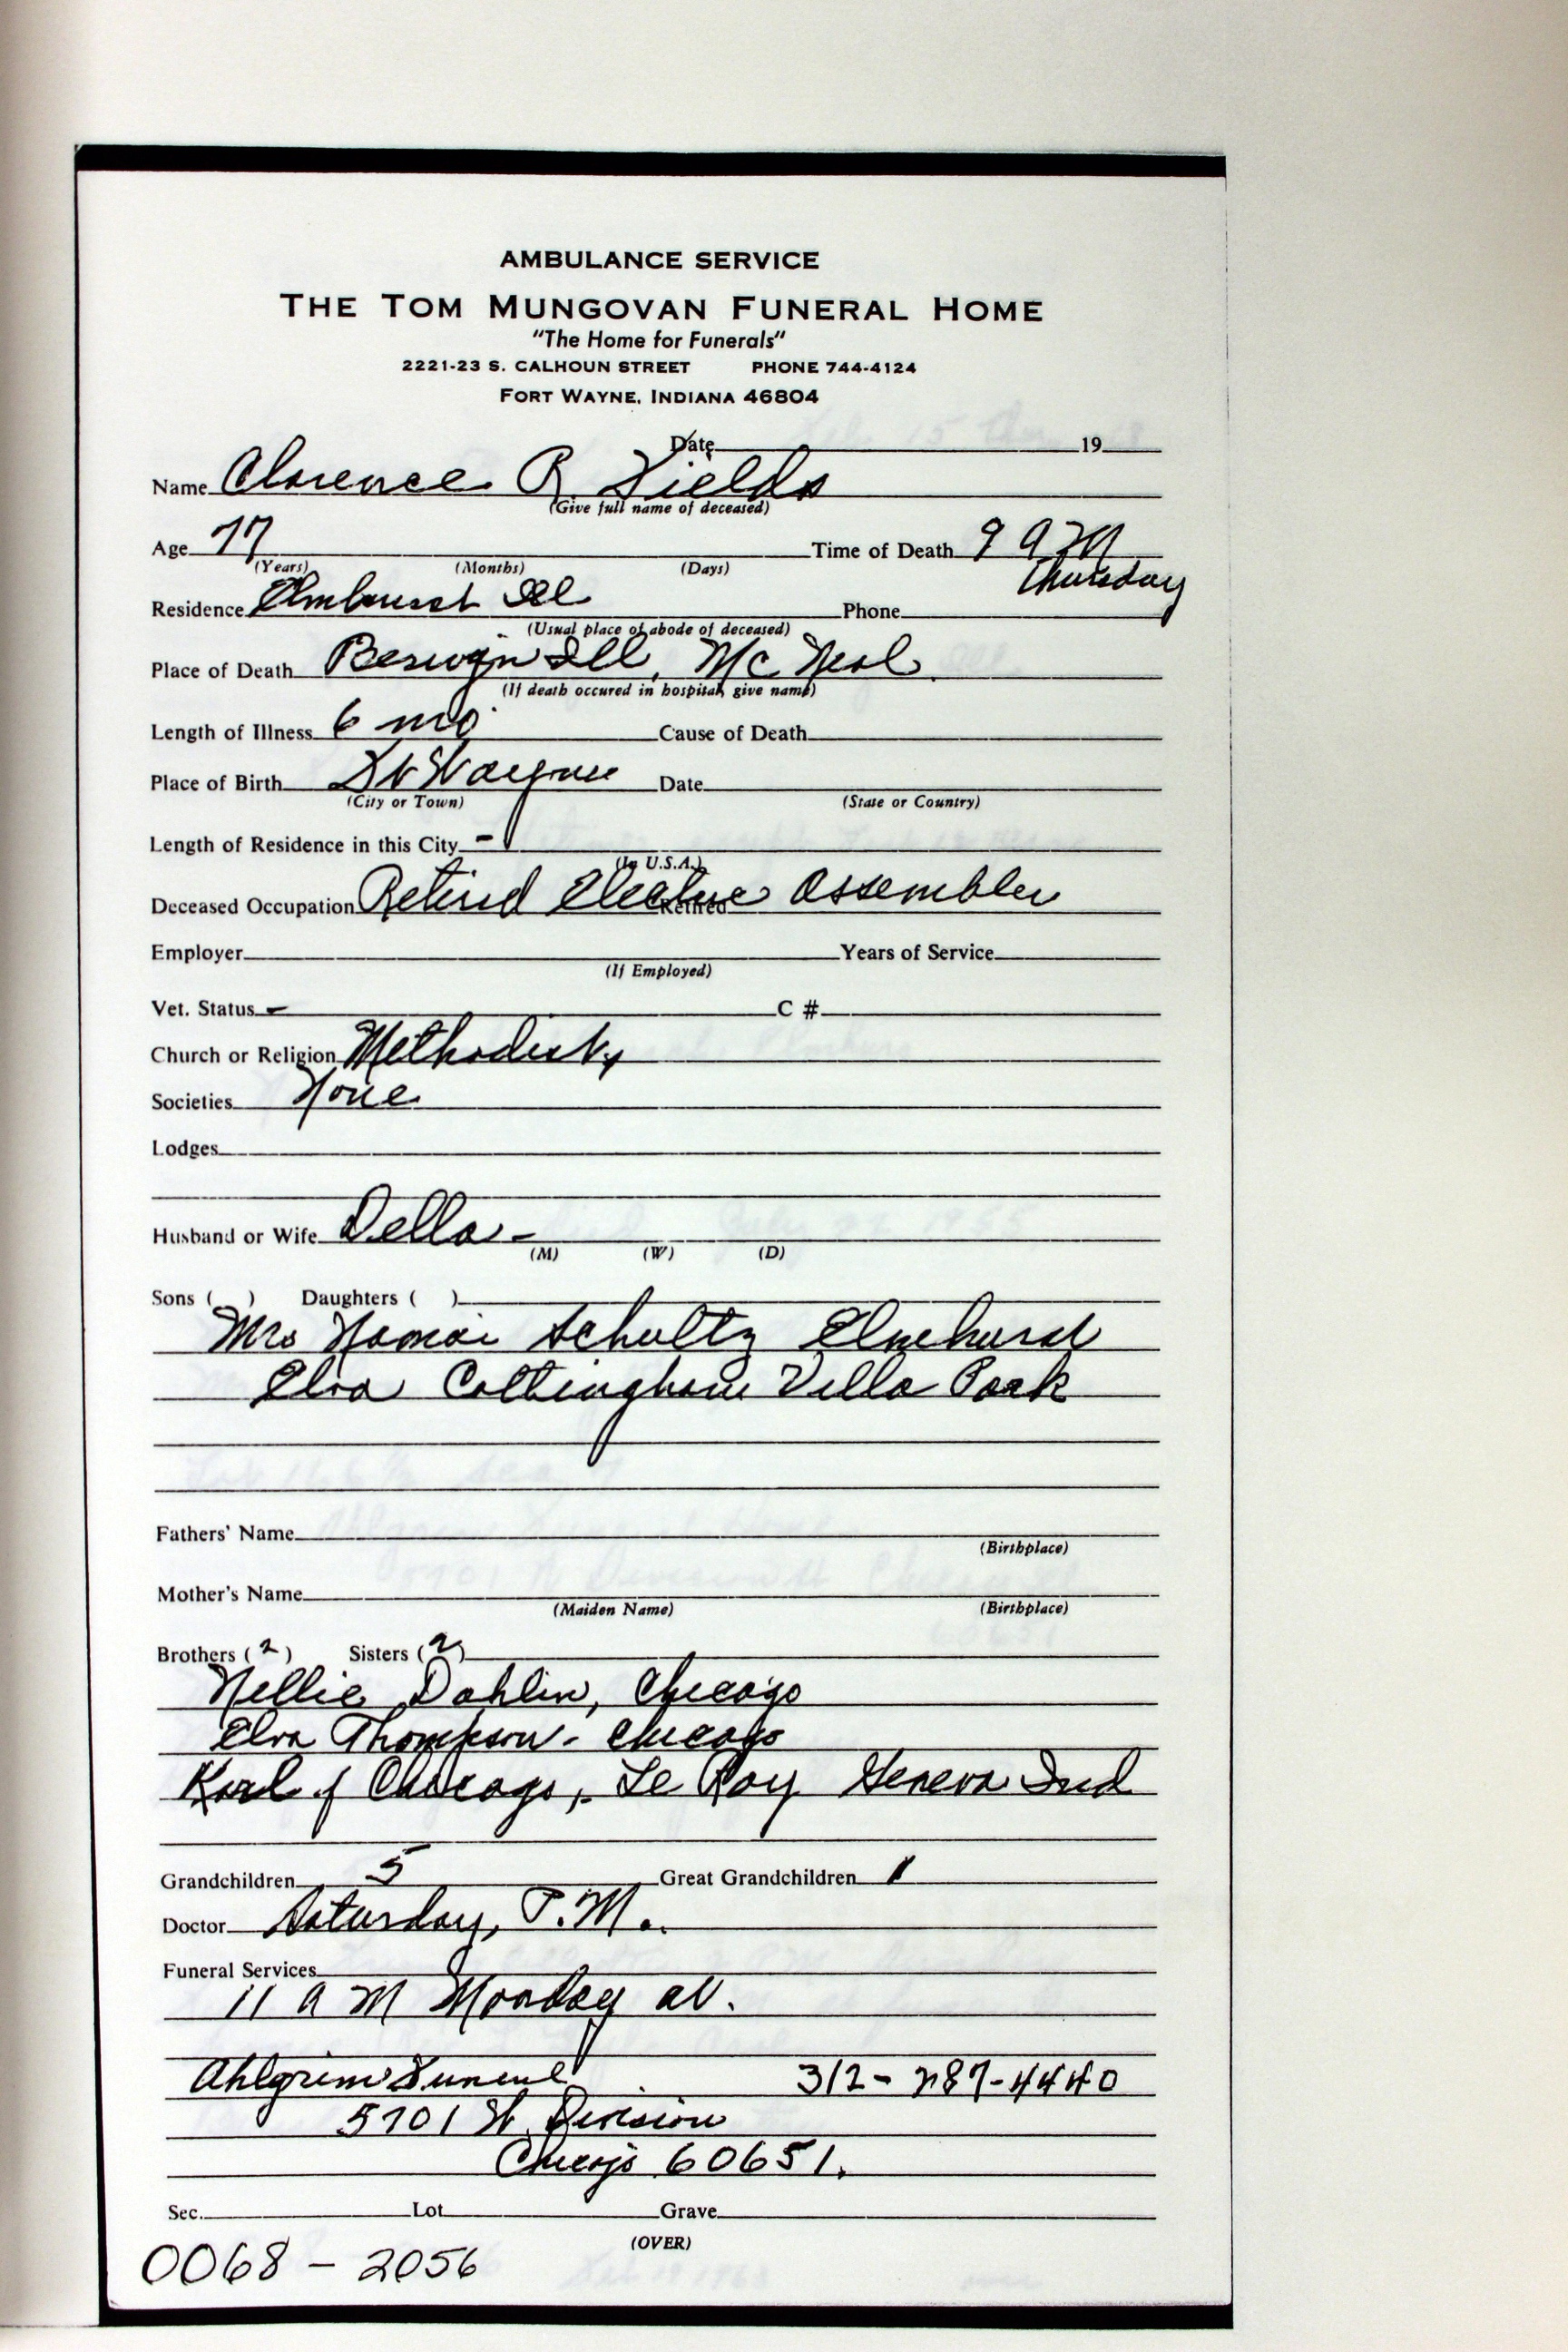 AMBULANCE SERVICE
THE TOM MUNGOVAN FUNERAL HOME
"The Home for Funerals"
2221-23 S. CALHOUN STREET PHONE 744-4124
FORT WAYNE, INDIANA 46804
Date 19
Name Clarence R Fields
(Give full name of deceased)
Age 77 Time of Death 9 AM
(Years) (Months) (Days) Thursday
Residence Elmhurst Ill Phone
(Usual place of abode of deceased)
Place of Death Berwyn Ill, Mc Neal
(If death occured in hospital, give name)
Length of Illness 6 mo Cause of Death
Place of Birth Ft Wayne Date
(City or Town) (State or Country)
Length of Residence in this City -
(In U.S.A.)
Deceased Occupation Retired Electric Assembler
Retired
Employer Years of Service
(If Employed)
Vet. Status - C #
Church or Religion Methodist
Societies None
Lodges
Husband or Wife Della -
(M) (W) (D)
Sons ( ) Daughters ( )
Mrs Schultz Elmhurst
Elva Cottingham Villa Park
Fathers' Name
(Birthplace)
Mother's Name
(Maiden Name) (Birthplace)
Brothers (2) Sisters (2)
Nellie Dahlin, Chicago
Elva Thompson - Chicago
Karl of Chicago, Le Roy Geneva Ind
Grandchildren 5 Great Grandchildren 1
Doctor Saturday, P.M.
Funeral Services
11 A M Monday at.
Ahlgrim Funeral 312-287-4440
5701 W Division
Chicago 60651.
Sec. Lot Grave
(OVER)
0068 - 2056